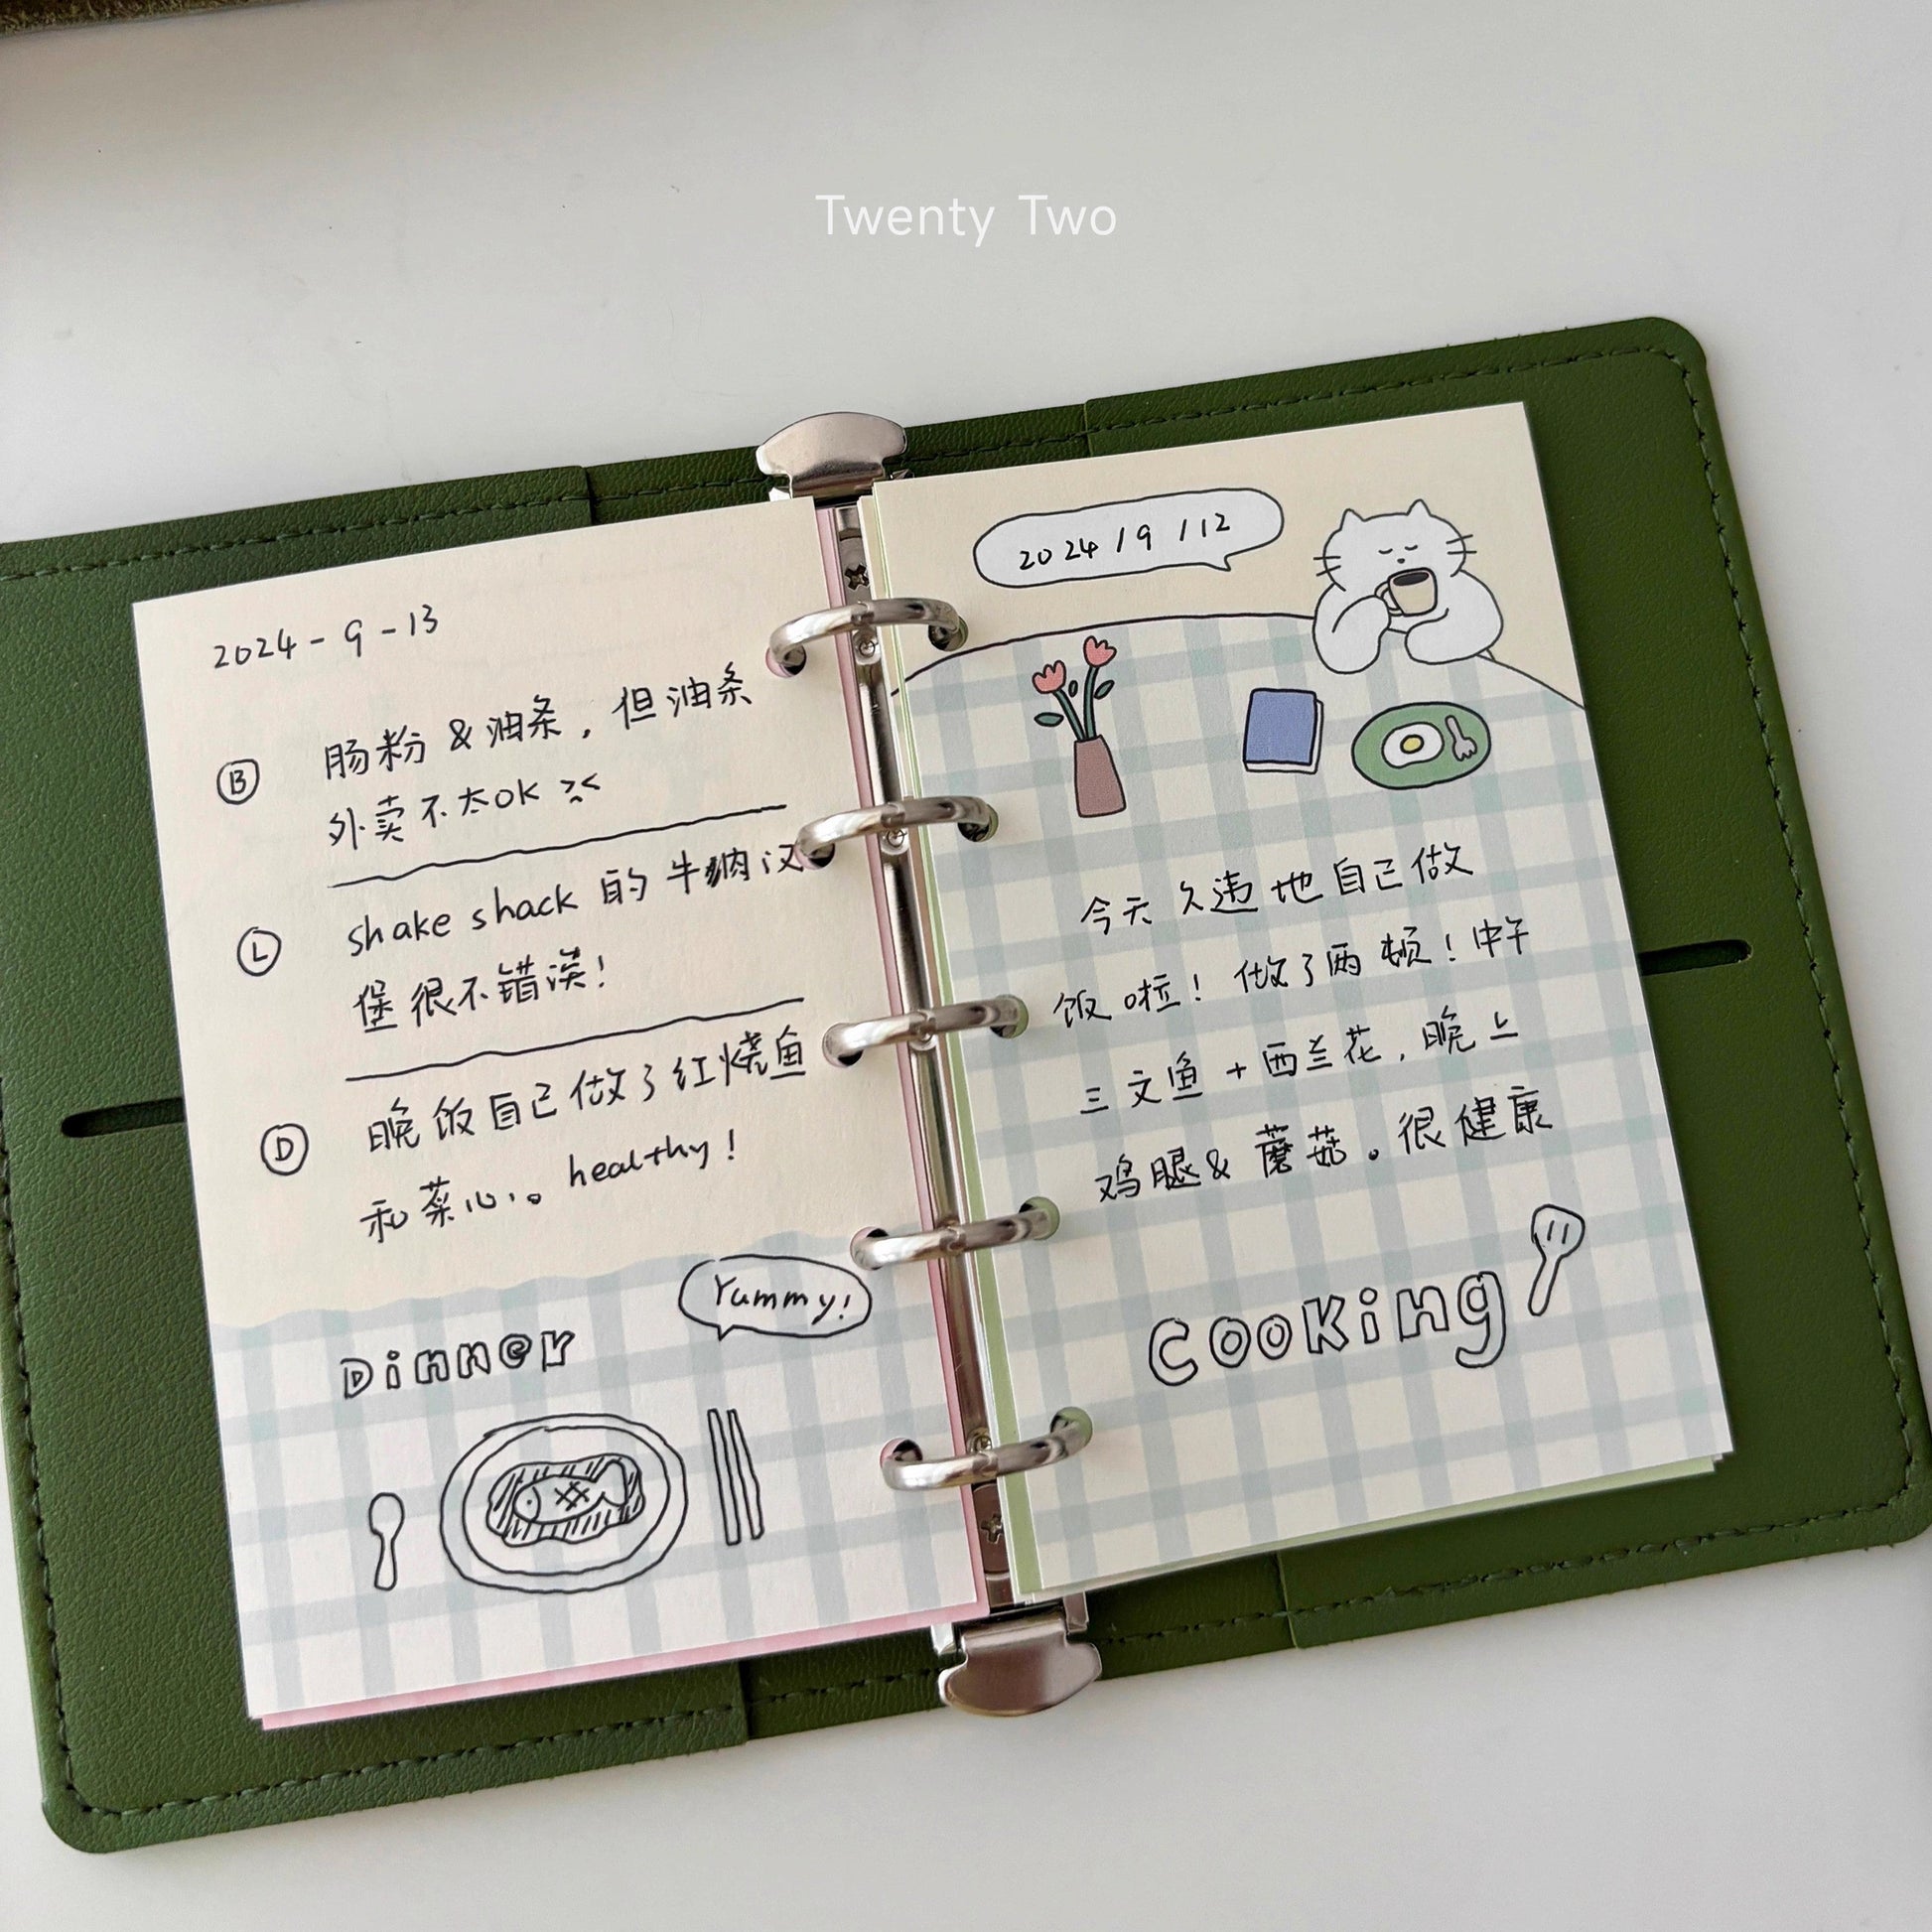 Twenty Two
2024-9-13
Ⓑ 肠粉 & 油条，但油条
外卖不太OK
Ⓛ shake shack 的 牛肉汉
堡很不错诶！
Ⓓ 晚饭自己做了红烧鱼
和菜心。healthy！
Yummy!
Dinner
2024/9/12
今天久违地自己做
饭啦！做了两顿！中午
三文鱼+西兰花，晚上
鸡腿&蘑菇。很健康
Cooking